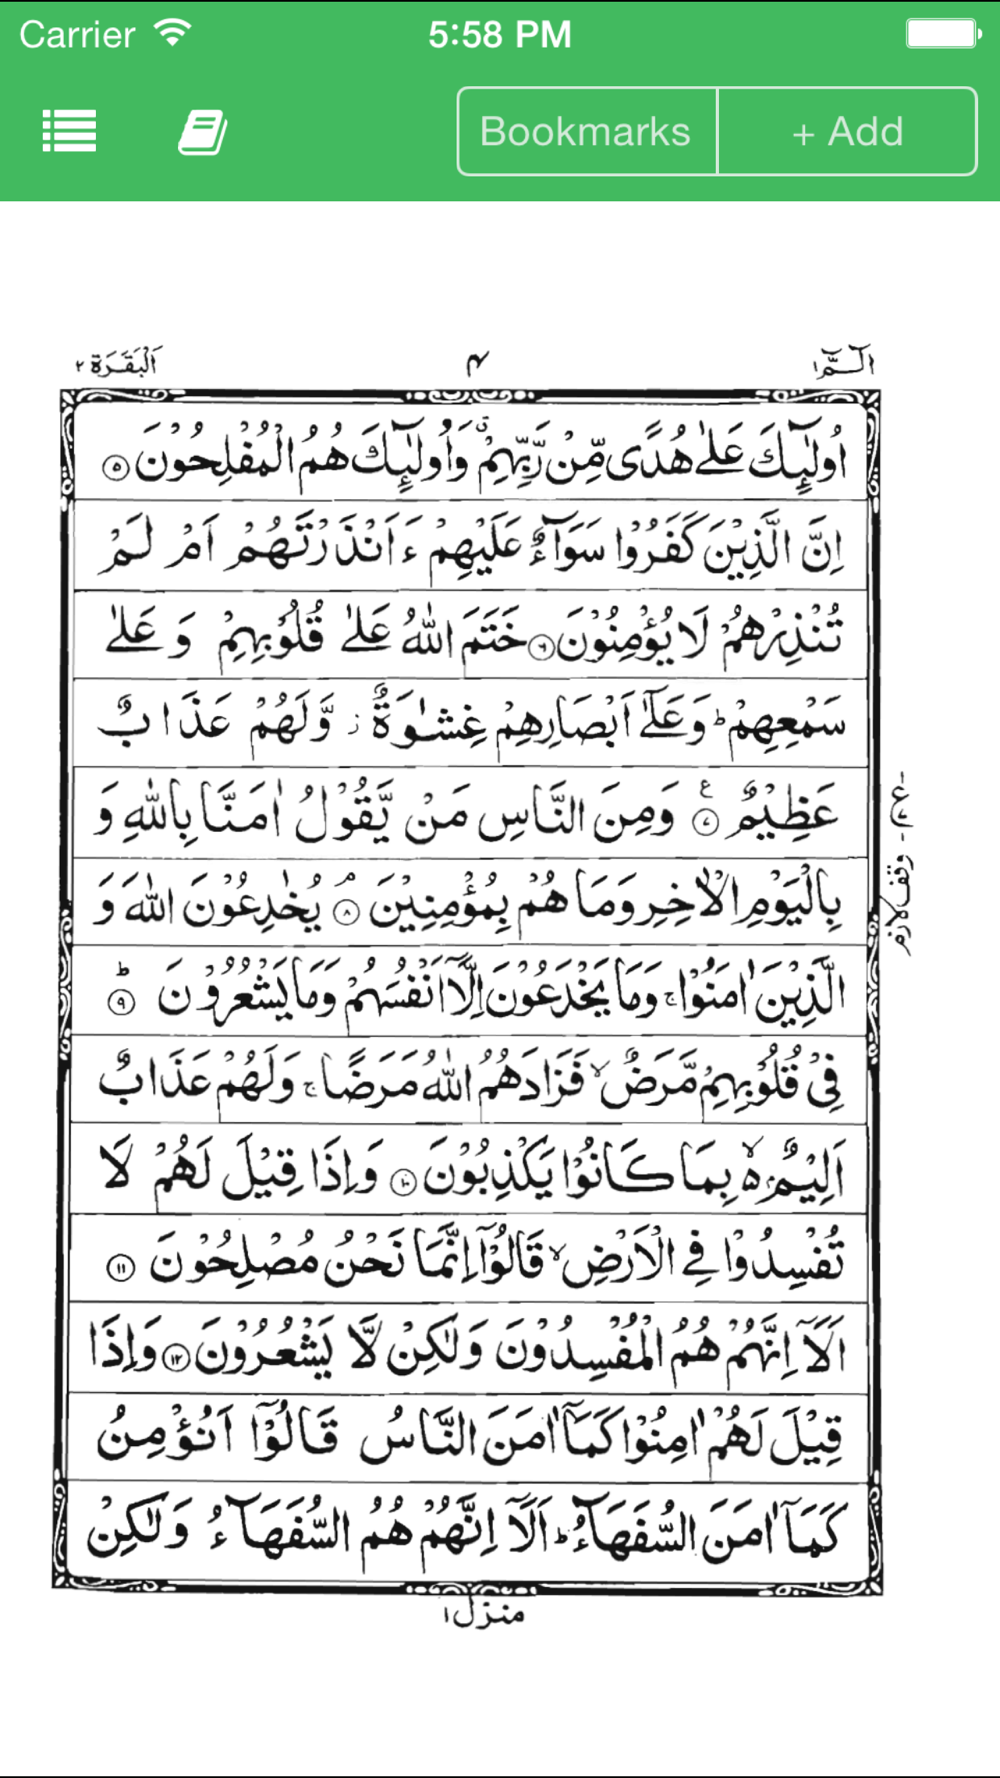 Carrier 5:58 PM
Bookmarks + Add
الٓـمّٓ ١ ۴ اَلْبَقَرَة ٢
اُولٰٓئِكَ عَلٰى هُدًى مِّنْ رَّبِّهِمْ ۗ وَاُولٰٓئِكَ هُمُ الْمُفْلِحُوْنَ ۝٥
اِنَّ الَّذِيْنَ كَفَرُوْا سَوَآءٌ عَلَيْهِمْ ءَاَنْذَرْتَهُمْ اَمْ لَمْ
تُنْذِرْهُمْ لَا يُؤْمِنُوْنَ ۝٦ خَتَمَ اللّٰهُ عَلٰى قُلُوْبِهِمْ وَ عَلٰى
سَمْعِهِمْ ؕ وَعَلٰٓى اَبْصَارِهِمْ غِشَاوَةٌ ز وَّلَهُمْ عَذَابٌ
عَظِيْمٌ ۝٧ ع وَمِنَ النَّاسِ مَنْ يَّقُوْلُ اٰمَنَّا بِاللّٰهِ وَ
بِالْيَوْمِ الْاٰخِرِ وَمَا هُمْ بِمُؤْمِنِيْنَ ۝٨ ۘ يُخٰدِعُوْنَ اللّٰهَ وَ
الَّذِيْنَ اٰمَنُوْا ۚ وَمَا يَخْدَعُوْنَ اِلَّاۤ اَنْفُسَهُمْ وَمَا يَشْعُرُوْنَ ۝٩ ؕ
فِيْ قُلُوْبِهِمْ مَّرَضٌ ۙ فَزَادَهُمُ اللّٰهُ مَرَضًا ۚ وَلَهُمْ عَذَابٌ
اَلِيْمٌ ۢ ۙ بِمَا كَانُوْا يَكْذِبُوْنَ ۝١٠ وَاِذَا قِيْلَ لَهُمْ لَا
تُفْسِدُوْا فِي الْاَرْضِ ۙ قَالُوْۤا اِنَّمَا نَحْنُ مُصْلِحُوْنَ ۝١١
اَلَاۤ اِنَّهُمْ هُمُ الْمُفْسِدُوْنَ وَلٰكِنْ لَّا يَشْعُرُوْنَ ۝١٢ وَاِذَا
قِيْلَ لَهُمْ اٰمِنُوْا كَمَاۤ اٰمَنَ النَّاسُ قَالُوْۤا اَنُؤْمِنُ
كَمَاۤ اٰمَنَ السُّفَهَآءُ ؕ اَلَاۤ اِنَّهُمْ هُمُ السُّفَهَآءُ وَلٰكِنْ
وقف لازم
منزل ١